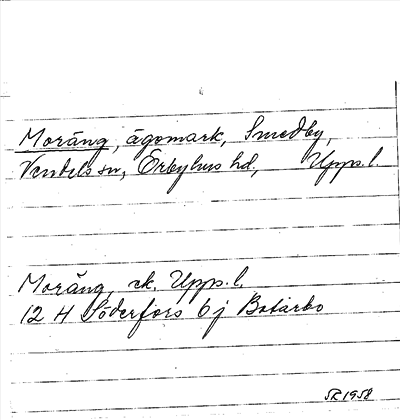 Moräng, ägomark, Smedby,
Vendels sn, Örbyhus hd, Upps. l.
Moräng, ek. Upps. l.
12 H Söderfors 6 j Botarbo
SR 1958